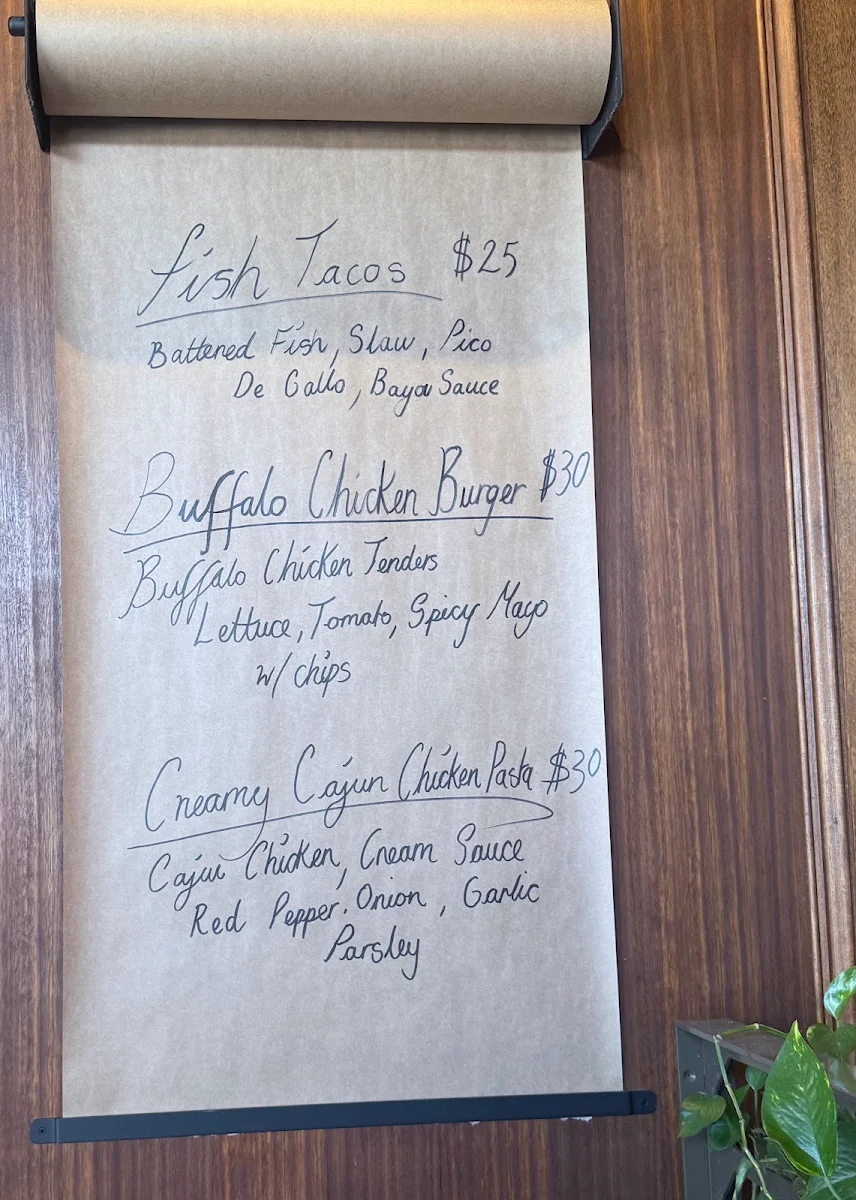 Fish Tacos $25
Battered Fish, Slaw, Pico
De Gallo, Baya Sauce
Buffalo Chicken Burger $30
Buffalo Chicken Tenders
Lettuce, Tomato, Spicy Mayo
w/ chips
Creamy Cajun Chicken Pasta $30
Cajun Chicken, Cream Sauce
Red Pepper. Onion, Garlic
Parsley